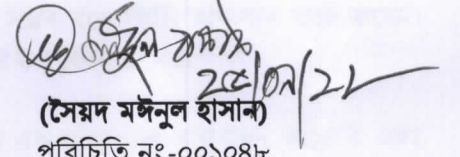 ২৫/০৭/২২
(সৈয়দ মঈনুল হাসান)
পরিচিতি নং-০০১০৪৮